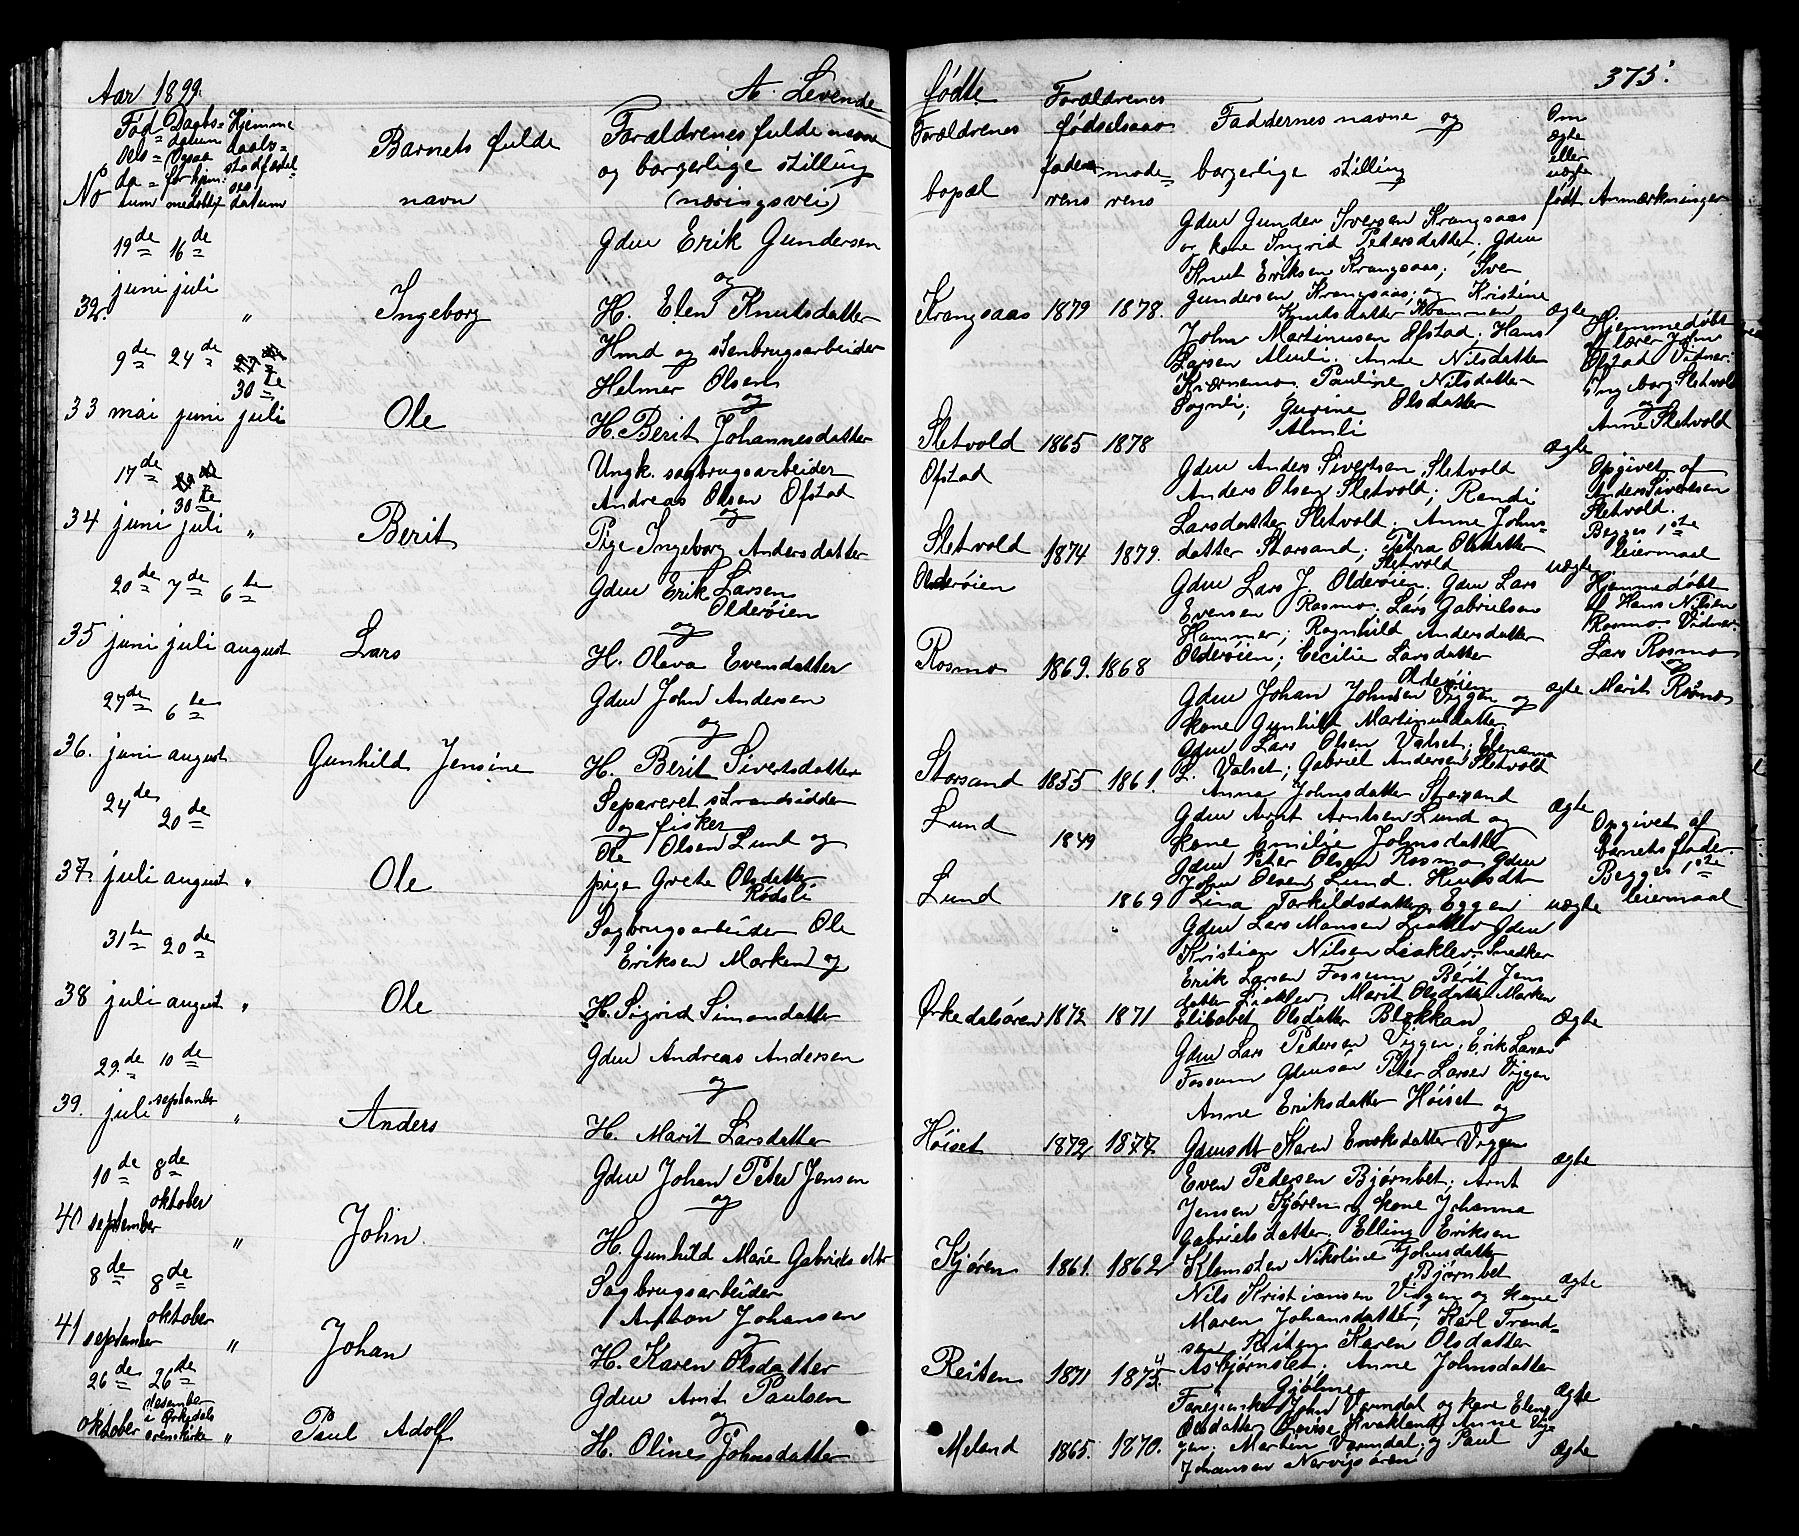 Aar 1899.
A. Levende
Fød- Daabs- Hjemme
datum daabs-
No
Barnets fulde
navn
Forældrenes fulde navn
og borgerlige stilling
(næringsvei)
19de 16de
juni juli
32. "
Ingeborg
Gdm Erik Gundersen
og
H. Elen Knutsdatter
9de 24de
30te
33 mai juni juli
Ole
Hmd og stenbrugsarbeider
Helmer Olsen
og
H. Berit Johannesdatter
17de
30te
34 juni juli "
Berit
Ungk. sagbrugsarbeider
Andreas Olsen Ofstad
og
Pige Ingeborg Andersdatter
20de 7de 6te
35 juni juli august
Lars
Gdm Erik Larsen
Olderøien
og
H. Olava Evensdatter
27de 6te
36. juni august
Gunhild Jensine
Gdm John Andersen
og
H. Berit Sivertsdatter
24de 20de
37. juli august "
Ole
Separeret strandsidder
og fisker
Ole Olsen Lund og
pige Grete Olsdatter
Rødsli
31te 20de
38 juli august "
Ole
Sagbrugsarbeider Ole
Eriksen Marken og
H. Sigrid Simonsdatter
29de 10de
39. juli september "
Anders
Gdm Andreas Andersen
og
H. Marit Larsdatter
10de 8de
oktober
40 september "
John.
Gdm Johan Peter Jensen
og
H. Gunhild Marie Gabriels dtr
8de 8de
oktober
41 september "
Johan
Sagbrugsarbeider
Anton Johansen
og
H. Karen Olsdatter
26de 26de
desember
i Orkedals
oktober "
Paul Adolf
Gdm Arnt Paulsen
og
H. Oline Johnsdatter
fødte
375.
Forældrenes
bopæl
Forældrenes
fødselsaar
faderens moderens
Faddernes navne og
borgerlige stilling
Om
ægte
eller
uægte
født
Anmærkninger
Krangsaas 1879 1878.
Gdm Gunder Iversen Krangsaas
og kone Ingrid Pedersdatter. Gdm
Knut Eriksen Krangsaas; Iver
Gundersen Krangsaas; og Kristine
Knutsdatter
ægte
Sletvold 1865 1878
John Martinusen Ofstad, Hans
Larsen Almli. Anne Nilsdatter
Kværnmo. Pauline Nilsdatter
Sognli; Gurine Olsdatter
Almli
ægte
Hjemmedøbt
af lærer John
Ofstad Vidner:
Ingeborg Sletvold
og
Anne Sletvold
Ofstad
Sletvold 1874 1879.
Gdm Anders Sivertsen Sletvold
Anders Olsen Sletvold; Randi
Larsdatter Sletvold. Anne Johns-
datter Storsand; Petra Olsdatter
Sletvold
uægte
Opgivet af
Anders Sivertsen
Sletvold.
Begges 1ste
leiermaal
Olderøien
Rosmo 1869. 1868
Gdm Lars J. Olderøien. Gdm Lars
Evensen Rosmo. Lars Gabrielsen
Hammer; Ragnhild Andersdatter
Olderøien; Cecilie Larsdatter
Olderøien
ægte
Hjemmedøbt
af Hans Nilsen
Rosmo. Vidner
Lars Rosmo
og
Marit Rosmo
Storsand 1855 1861.
Gdm Johan Johnsen Viggen og
kone Gunhild Martinusdatter
Gdm Lars Olsen Valset; Elenanna
L. Valset; Gabriel Andersen Sletvold
Anna Johnsdatter Storsand
ægte
Lund 1849
Lund 1869
Gdm Arnt Arntsen Lund og
kone Emilie Johnsdatter
Gdm Peter Olsen Rosmo Gdm
John Olsen Lund.
Lina Torkildsdatter Eggen
uægte
Opgivet af
barnets fader.
Begges 1ste
leiermaal
Ørkedalsøren 1872 1871
Gdm Lars Hansen Liaklev Gdm
Kristian Nilsen Liaklev. Snedker
Erik Larsen Fossum Berit Jens
datter Liaklev Marit Olsdatter Marken
Elisabet Olsdatter Blekkan
Ægte
Høiset 1872 1877
Gdm Lars Pedersen Viggen; Erik Larsen
Fossum Gdmsøn Peter Larsen Viggen
Anne Eriksdatter Høiset og
Gdmsdt Karen Enoksdatter Viggen
ægte
Kjøren 1861. 1862
Even Pedersen Bjørnbet; Arnt
Jensen Kjøren og kone Johanna
Gabrielsdatter, Elling Eriksen
Klemsten Nikoline Johnsdatter
Bjørnbet
ægte
Reiten 1871 1875.
Nils Kristiansen Viggen og kone
Maren Johansdatter; Karl Trond-
sen Reiten Karen Olsdatter
Asbjørnslet. Anne Johnsdatter
Gjølme
Ægte
Meland 1865. 1870.
John Varmdal og kone Elen
Olsdatter Anne Vig
gen; Morten Varmdal; og Paul
Johansen Narvigsøren
Ægte